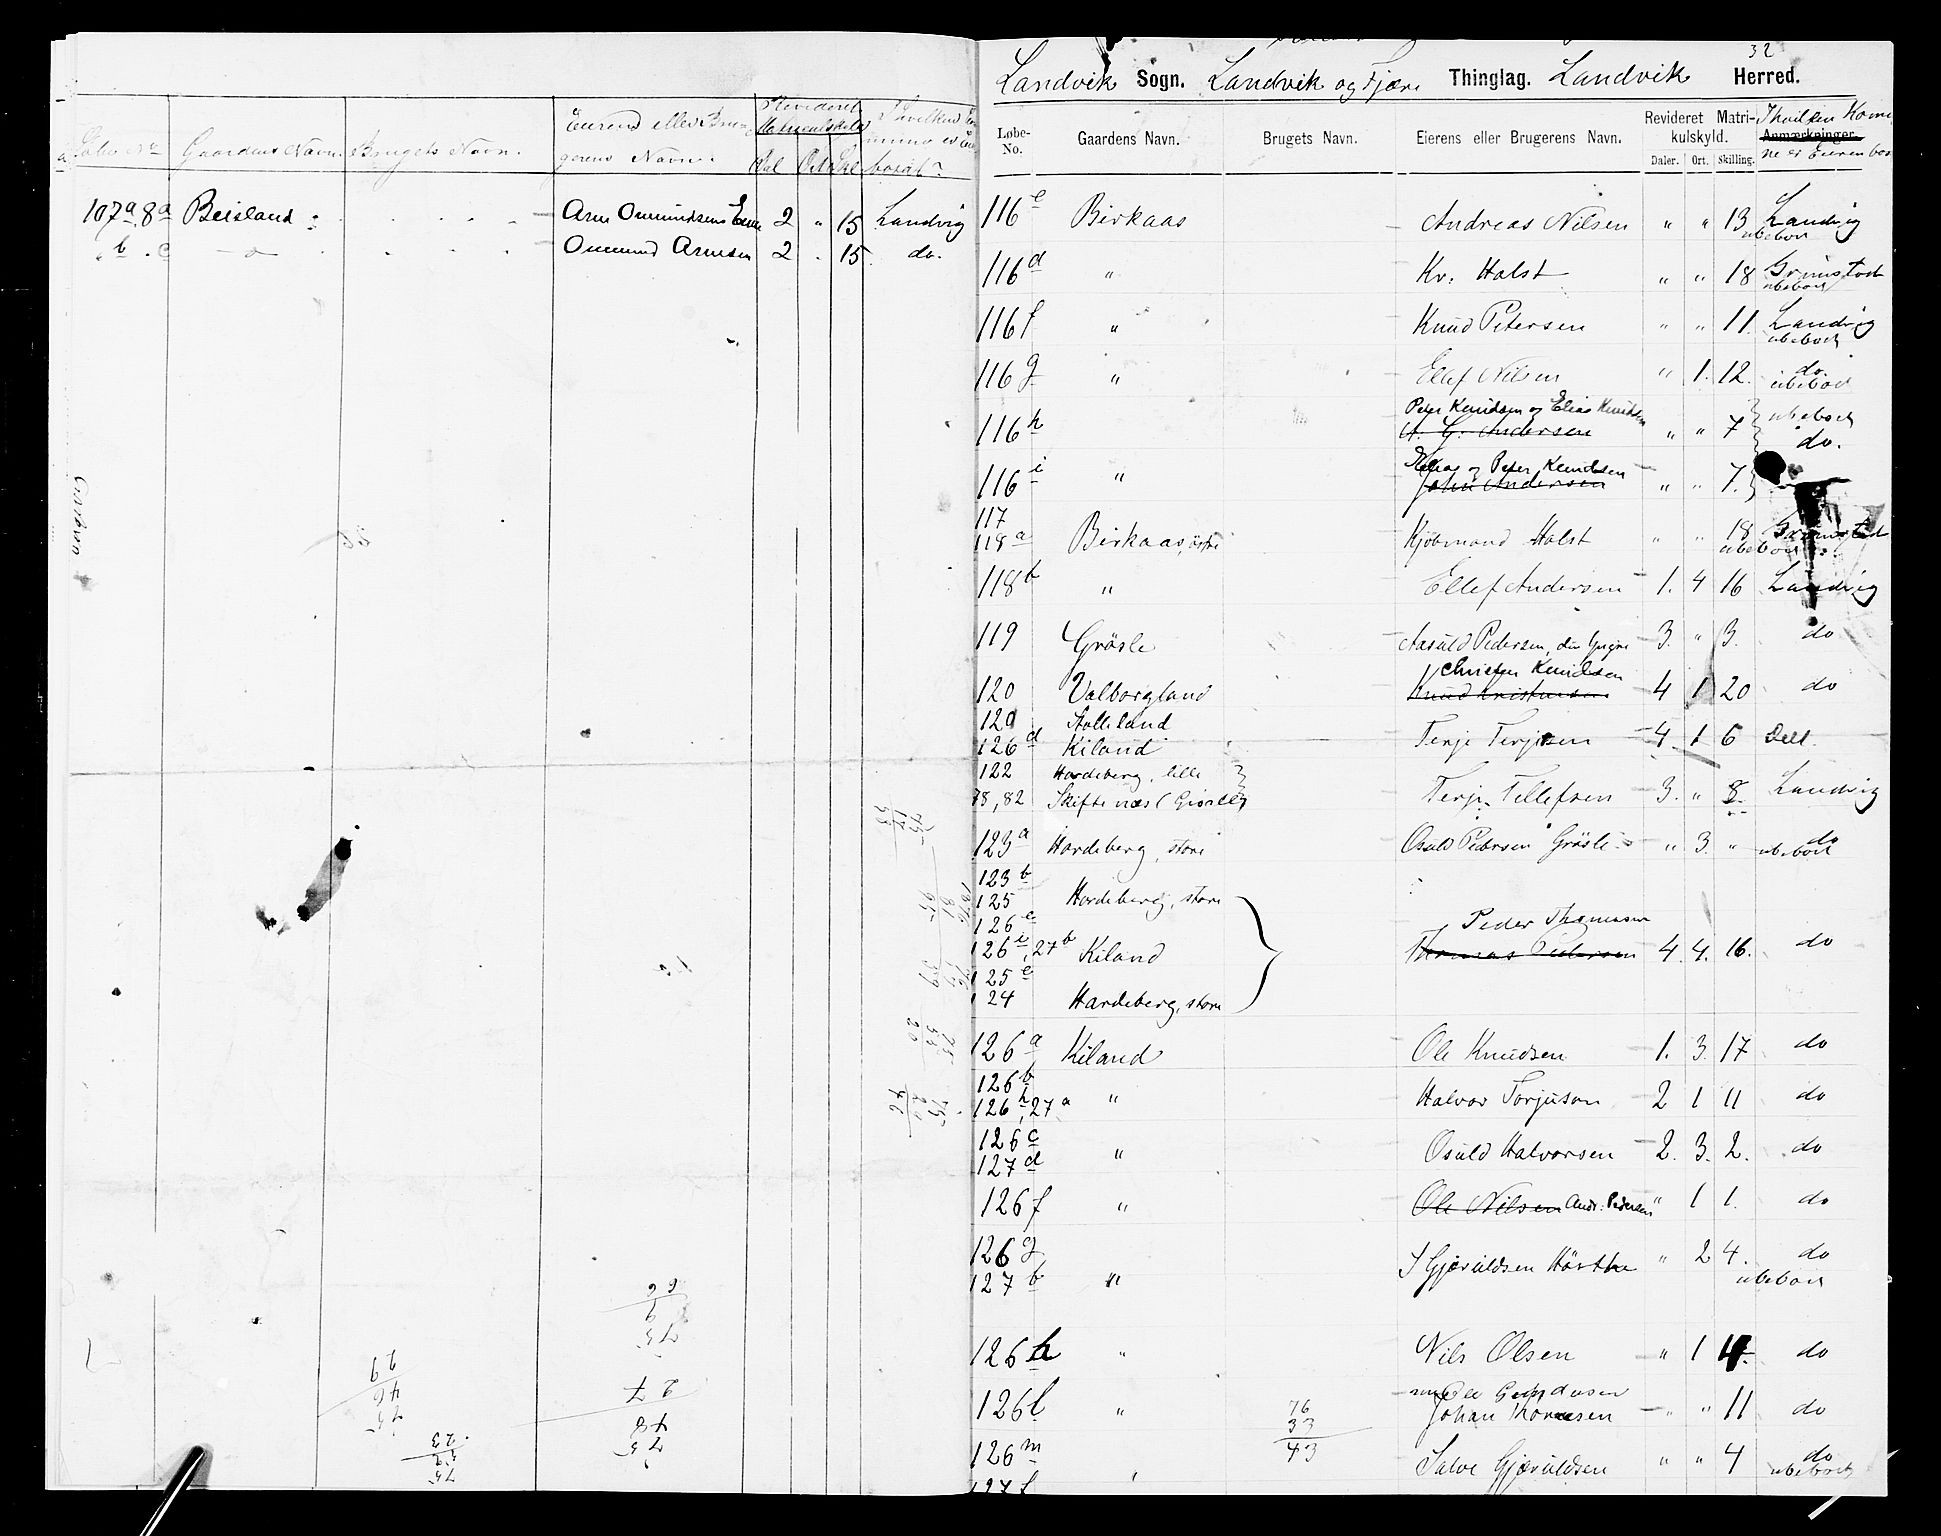 Gaardens Navn. Brugets Navn.
Eierens eller Bru-
gerens Navn.
Revideret
107a 8a Beisland Arne Omundsens Enke 2 " 15 Landvig
" b . c — " — Omund Arnesen 2 . 15 do.
32
Landvik Sogn. Landvik og Fjære Thinglag. Landvik Herred.
Løbe-No. Gaardens Navn. Brugets Navn. Eierens eller Brugerens Navn. Revideret Matri-kulskyld. Anmærkninger.
Daler. Ort. Skilling.
116e Birkaas Andreas Nilsen " " 13 Landvig
ubeboet
116d " Kr. Holst " " 18 Grimstad
ubeboet
116f " Knud Petersen " " 11. Landvig
ubeboet
116g " Ellef Nilsen " 1. 12. do.
ubeboet
Peder Knudsen og Elias Knudsen ubeboet
116h A. G. Andersen " " 7 do.
Elias og Peder Knudsen
116i " John Andersen " " 7.
117
118a Birkaas, østre Kjøbmand Holst " " 18 Grimstad
ubeboet
118b " Ellef Andersen 1. 4 16 Landvig
119 Grösle Aasuld Pedersen, den Yngre 3. " 3. do
Christen Knudsen
120 Valborgland Knud Kristensen 4 1 20 do
Stalleland
126d Kiland Terje Terjesen 4 1 6
122 Hardeberg, lille
78, 82 Skiftenæs (Grösle) Terje Tellefsen 3. " 8. Landvig
123a Hardeberg, store Osuld Pedersen Grösle " 3. " do
ubeboet
123b
125 Hardeberg, store
126e
Peder Thomassen
126i, 27b Kiland Thomas Pedersen 4. 4. 16. do
125e
124 Hardeberg, store
126a Kiland Ole Knudsen 1. 3. 17 do
126b
126h, 27a " Halvor Torjusen 2 1 11 do
126c
127d " Osuld Halvorsen 2. 3. 2. do
126f " Ole Nilsen Andr. Pedersen " 1 1. do
126g
127b " S Gjeruldsen Hörthe " 2 4. do
ubeboet
126k " Nils Olsen " 1 4. do
126l " Johan Thomesen " " 11 do
76
33
43
126m " Salve Gjeruldsen " " 4 do
ubeboet
127f